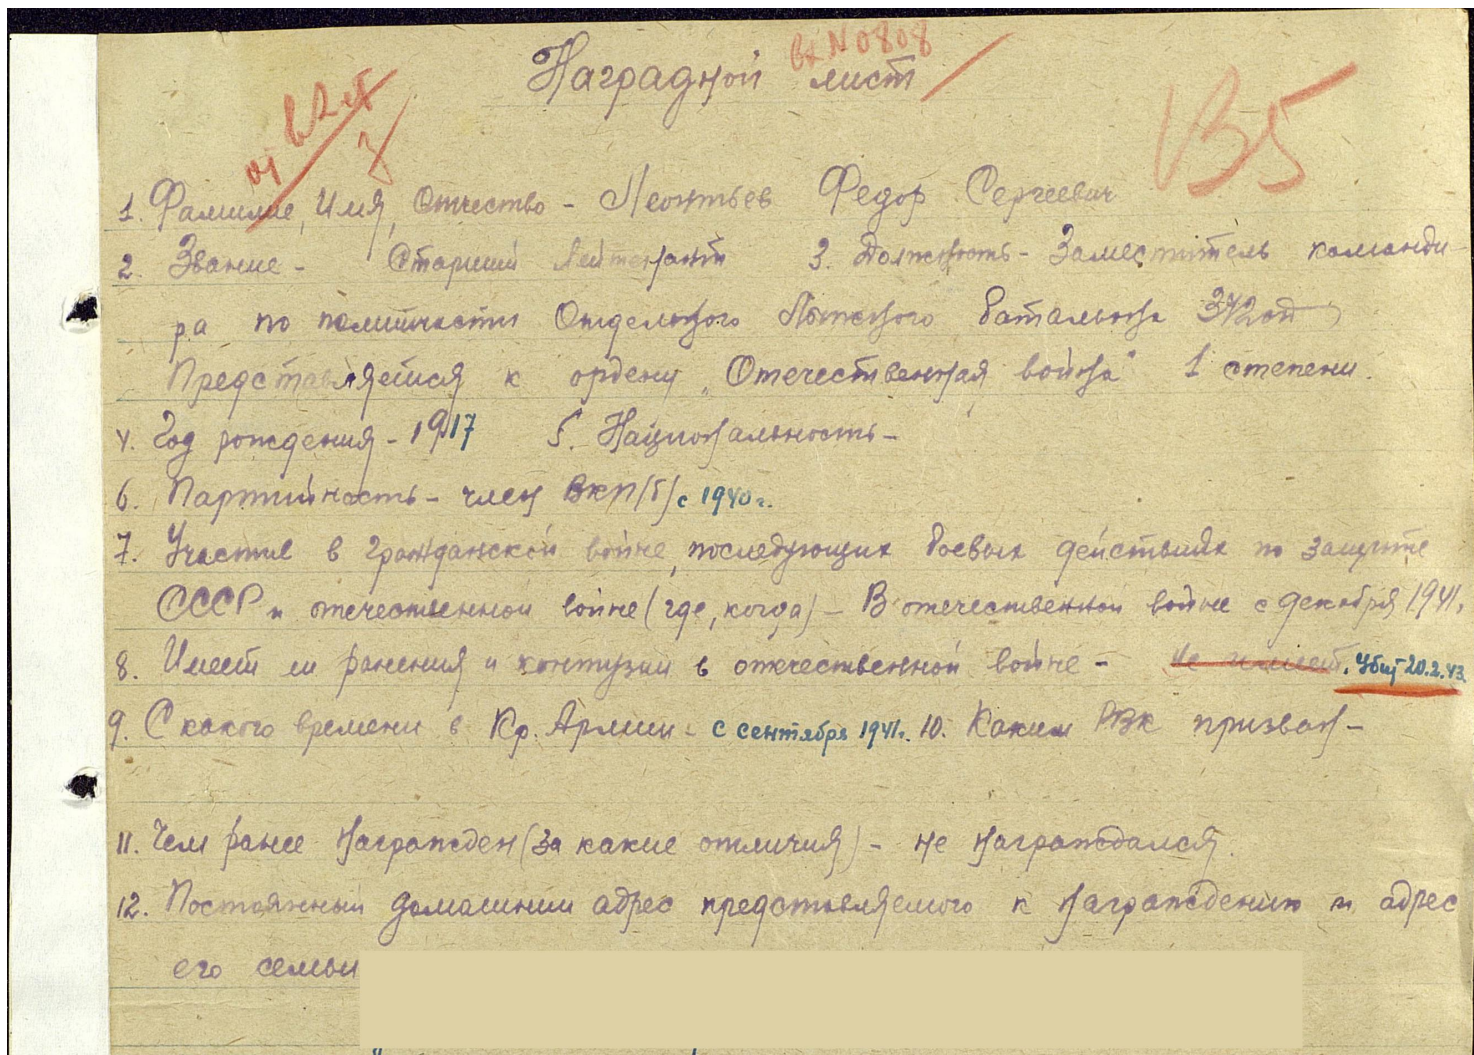 вх N 0808
Наградной лист
В5
1. Фамилие, Имя, Отчество - Леонтьев Федор Сергеевич
2. Звание - Старший лейтенант 3. Должность - Заместитель команди-
ра по политчасти Отдельного Лыжного батальона 372 сд
Представляется к ордену „Отечественная война" 1 степени.
4. Год рождения - 1917 5. Национальность -
6. Партийность - член ВКП(б) с 1940 г.
7. Участие в гражданской войне, последующих боевых действиях по защите
СССР и отечественной войне (где, когда) - В отечественной войне с декабря 1941г.
8. Имеет ли ранения и контузии в отечественной войне - не имеет. Убит 20.2.43
9. С какого времени в Кр. Армии - с сентября 1941г. 10. Каким РВК призван -
11. Чем ранее награжден (за какие отличия) - не награждался.
12. Постоянный домашний адрес представляемого к награждению и адрес
его семьи